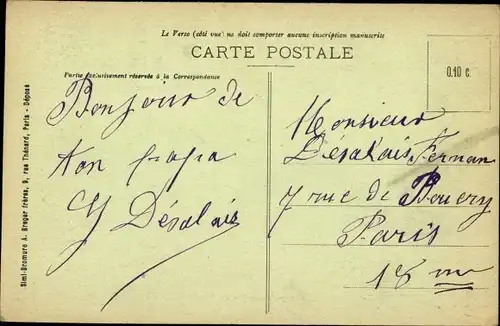 Le Verso (côté vue) ne doit comporter aucune inscription manuscrite
CARTE POSTALE
Partie exclusivement réservée à la Correspondance
0.10 c.
Bonjour de
ton papa
Désalais
Monsieur
Désalais Fernan
7 rue de
Paris
18 me
Simi-Bromure A. Breger frères, 9, rue Thénard, Paris - Déposé